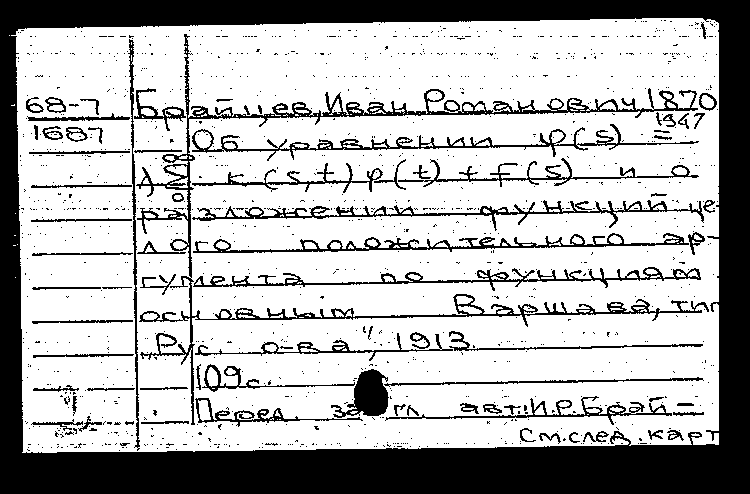 68-7. Брайцев, Иван Романович, 1870
1687 Об уравнении φ(s) = 1947
λ∑ к(s,t)φ(t) + f(s) и о
разложении функций це-
лого положительного ар-
гумента по функциям
основным Варшава, тип
„Рус. о-ва", 1913.
109с.
Перед загл. авт.: И.Р. Брай-
См. след. карт